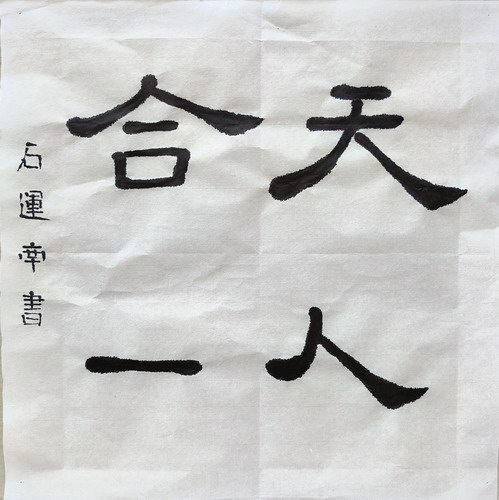 天人
合一
石運南書